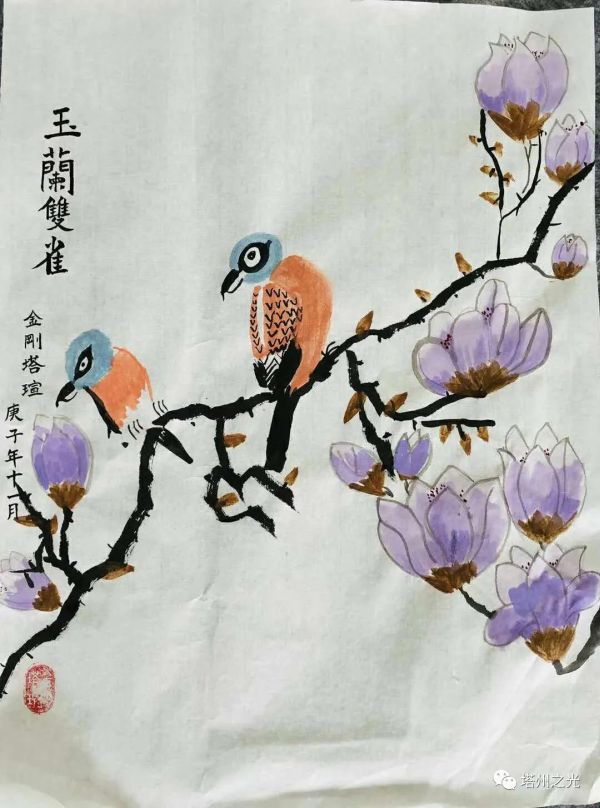 玉蘭雙雀
金剛塔瑄
庚子年十一月
塔州之光